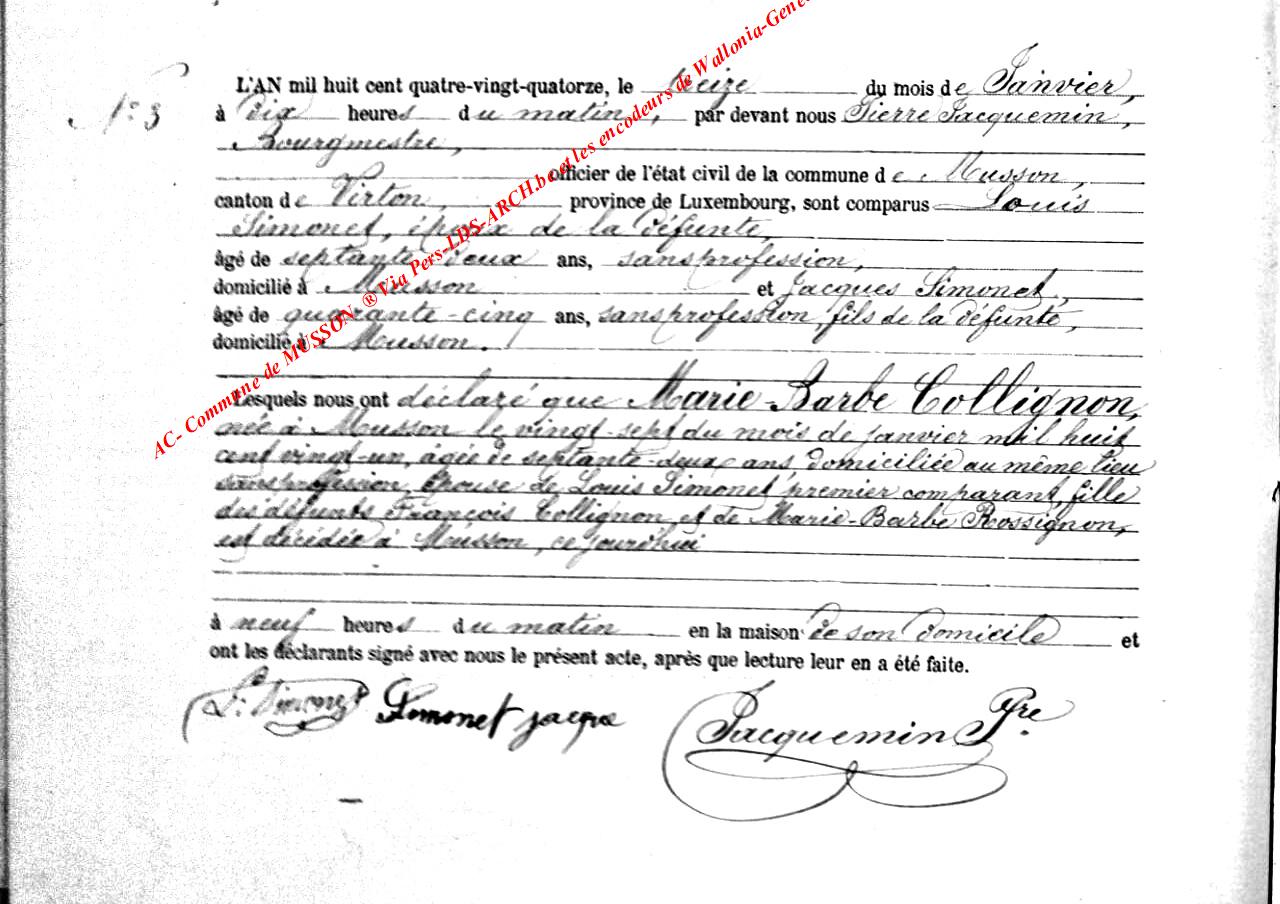 N° 3
L'AN mil huit cent quatre-vingt-quatorze, le du mois de Janvier,
à Dix heures du matin, par devant nous Pierre Jacquemin,
Bourgmestre,
officier de l'état civil de la commune de Musson,
canton de Virton, province de Luxembourg, sont comparus Louis
Simonet, époux de la défunte,
âgé de septante-deux ans, sans profession,
domicilié à Musson et Jacques Simonet,
âgé de quarante-cinq ans, sans profession, fils de la défunte,
domicilié à Musson.
Lesquels nous ont déclaré que Marie-Barbe Collignon,
née à Musson le vingt-sept du mois de janvier mil huit
cent vingt-un, âgée de septante-deux ans, domiciliée au même lieu
sans profession, épouse de Louis Simonet premier comparant, fille
des défunts François Collignon et de Marie-Barbe Rossignon,
est décédée à Musson, ce jourd'hui
à neuf heures du matin en la maison de son domicile et
ont les déclarants signé avec nous le présent acte, après que lecture leur en a été faite.
L. Simonet Simonet jacque Jacquemin Pre.
AC- Commune de MUSSON ® Via Pers-LDS-ARCH.be et les encodeurs de Wallonia-Gene